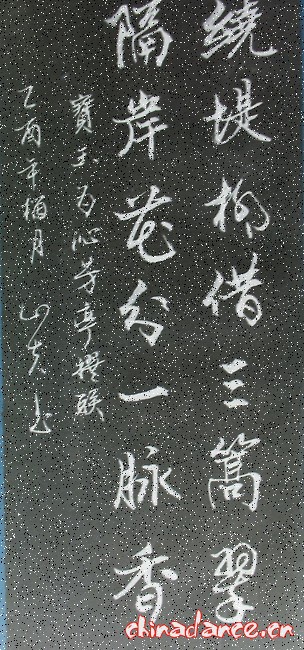 繞堤柳借三篙翠
隔岸花分一脉香
寳玉为沁芳亭撰联
乙酉年梅月
chinadance.cn